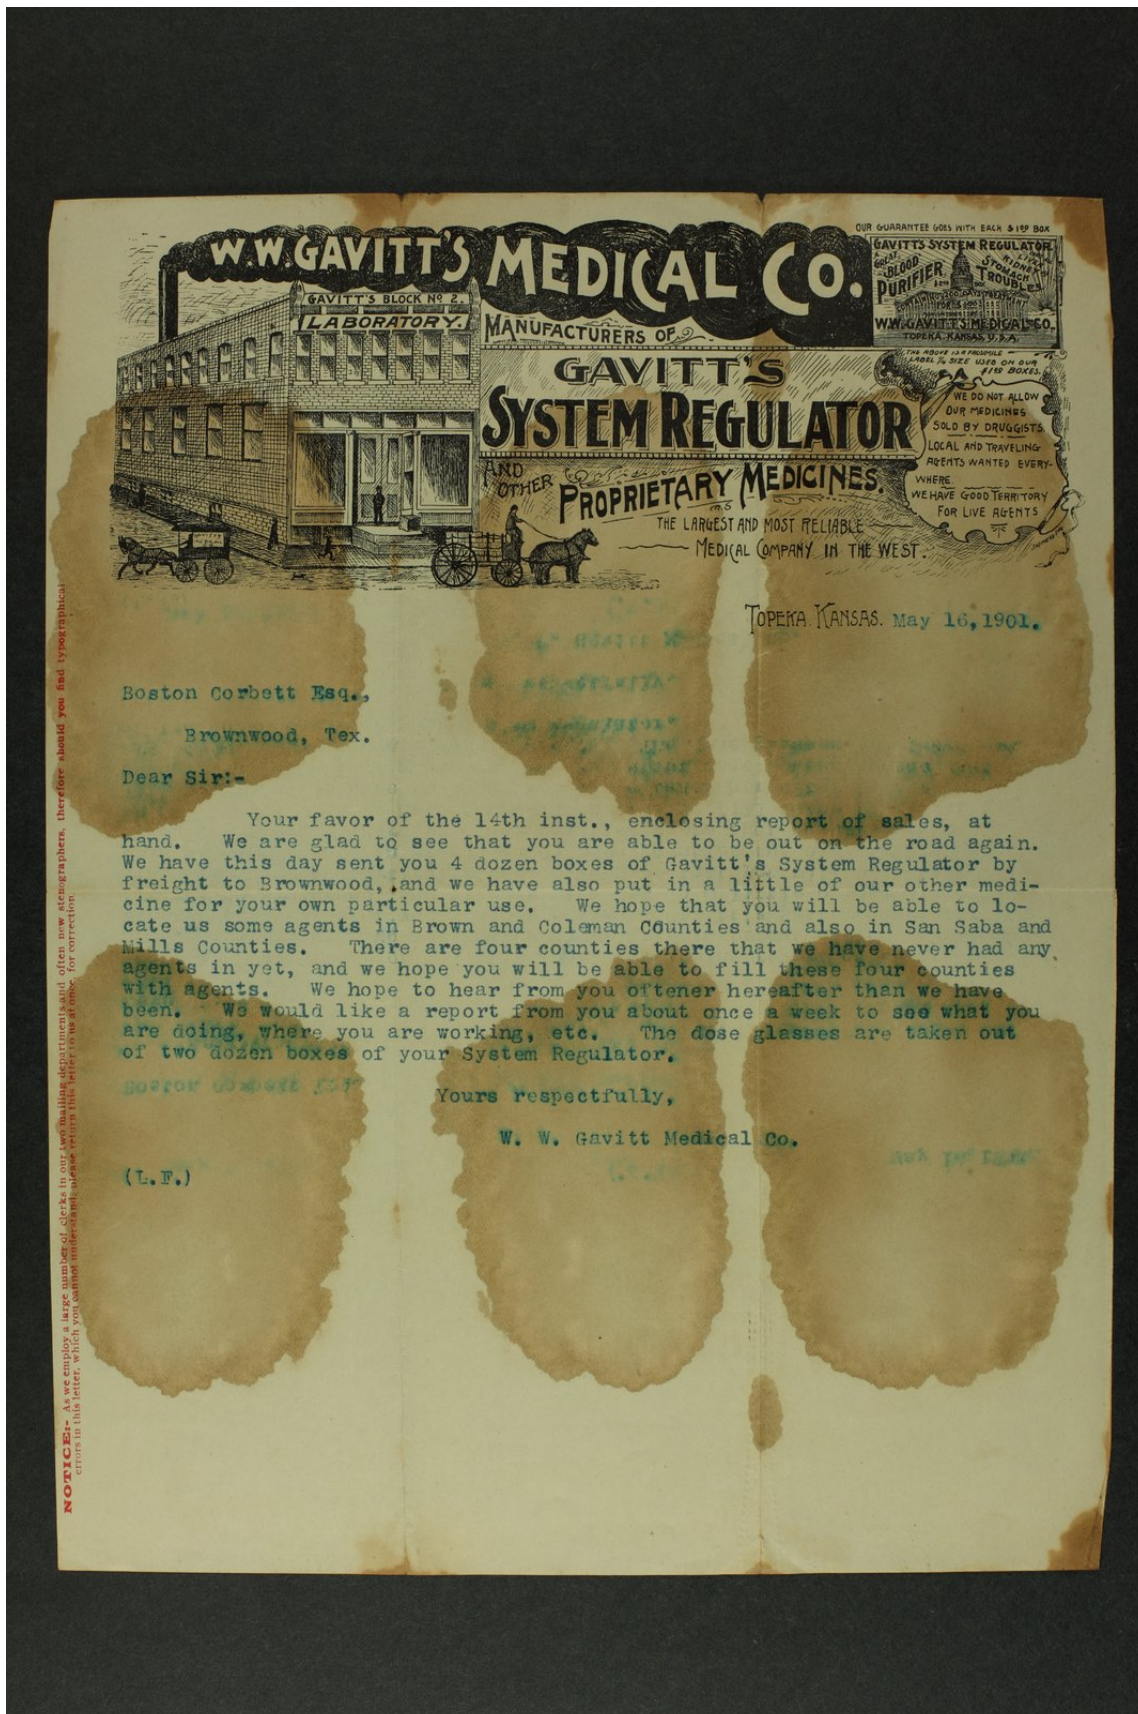 W.W. GAVITT'S MEDICAL CO.
OUR GUARANTEE GOES WITH EACH $1.00 BOX
GAVITT'S SYSTEM REGULATOR
GREAT BLOOD PURIFIER
KIDNEY
STOMACH TROUBLES
W.W. GAVITT'S MEDICAL CO.
TOPEKA, KANSAS, U.S.A.
THE ABOVE IS A FACSIMILE
LABEL SIZE USED ON OUR
$1.00 BOXES.
GAVITT'S BLOCK No 2.
LABORATORY.
MANUFACTURERS OF
GAVITT'S
SYSTEM REGULATOR
AND OTHER PROPRIETARY MEDICINES.
THE LARGEST AND MOST RELIABLE
MEDICAL COMPANY IN THE WEST.
WE DO NOT ALLOW
OUR MEDICINES
SOLD BY DRUGGISTS.
LOCAL AND TRAVELING
AGENTS WANTED EVERY-
WHERE.
WE HAVE GOOD TERRITORY
FOR LIVE AGENTS
TOPEKA. KANSAS. May 16,1901.
Boston Corbett Esq.,
Brownwood, Tex.
Dear Sir:-
Your favor of the 14th inst., enclosing report of sales, at
hand. We are glad to see that you are able to be out on the road again.
We have this day sent you 4 dozen boxes of Gavitt's System Regulator by
freight to Brownwood, and we have also put in a little of our other medi-
cine for your own particular use. We hope that you will be able to lo-
cate us some agents in Brown and Coleman Counties and also in San Saba and
Mills Counties. There are four counties there that we have never had any
agents in yet, and we hope you will be able to fill these four counties
with agents. We hope to hear from you oftener hereafter than we have
been. We would like a report from you about once a week to see what you
are doing, where you are working, etc. The dose glasses are taken out
of two dozen boxes of your System Regulator.
Yours respectfully,
W. W. Gavitt Medical Co.
(L.F.)
NOTICE:- As we employ a large number of clerks in our two mailing departments and often new stenographers, therefore should you find typographical
errors in this letter, which you cannot understand, please return this letter to us at once for correction.